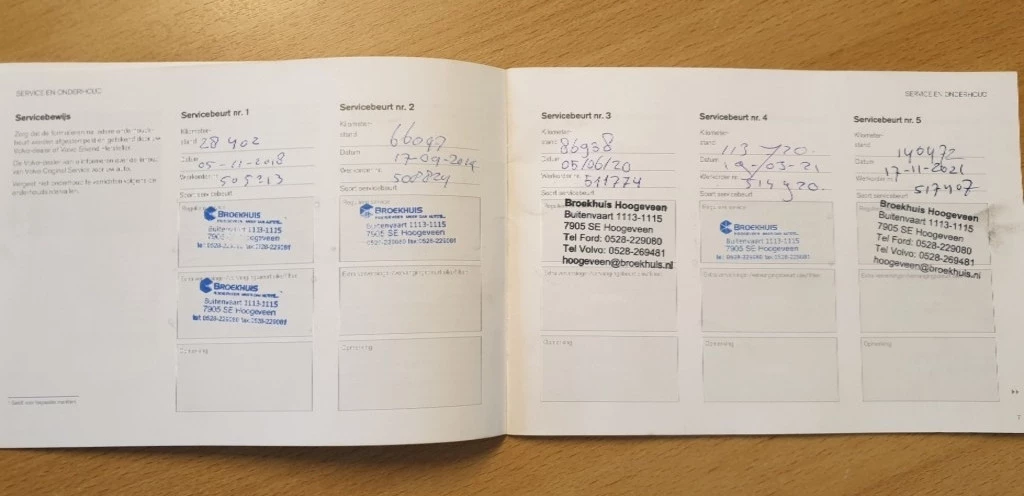 SERVICE EN ONDERHOUD
Servicebewijs
Zorg dat de formulieren na iedere onderhouds-
beurt worden afgestempeld en getekend door uw
Volvo-dealer of Volvo Erkend Hersteller.
van Volvo Original Service door uw auto.
Servicebeurt nr. 1
Kilometer-
stand 28402
Datum
05-11-2018
Werkorder nr.
505213
Soort servicebeurt
BROEKHUIS
Buitenvaart 1113-1115
7905 SE Hoogeveen
BROEKHUIS
Buitenvaart 1113-1115
7905 SE Hoogeveen
tel: 0528-229080 fax: 0528-229081
Opmerking
Servicebeurt nr. 2
Kilometer-
stand 66097
Datum 17-09-2019
Werkorder nr. 508824
Soort servicebeurt
Reguliere service
BROEKHUIS
Buitenvaart 1113-1115
7905 SE Hoogeveen
0528-229080 fax: 0528-229081
Opmerking
SERVICE EN ONDERHOUD
Servicebeurt nr. 3
Kilometer-
stand 86938
Datum 05/06/20
Werkorder nr. 511774
Soort servicebeurt
Broekhuis Hoogeveen
Buitenvaart 1113-1115
7905 SE Hoogeveen
Tel Ford: 0528-229080
Tel Volvo: 0528-269481
hoogeveen@broekhuis.nl
Opmerking
Servicebeurt nr. 4
Kilometer-
stand 113720.
Datum
Werkorder nr. 514920.
Soort servicebeurt
Reguliere service
BROEKHUIS
Buitenvaart 1113-1115
7905 SE Hoogeveen
tel: 0528-229080 fax: 0528-229081
Opmerking
Servicebeurt nr. 5
Kilometer-
stand 140472
Datum 17-11-2021
Werkorder nr. 517407
Soort servicebeurt
Broekhuis Hoogeveen
Buitenvaart 1113-1115
7905 SE Hoogeveen
Tel Ford: 0528-229080
Tel Volvo: 0528-269481
hoogeveen@broekhuis.nl
Opmerking